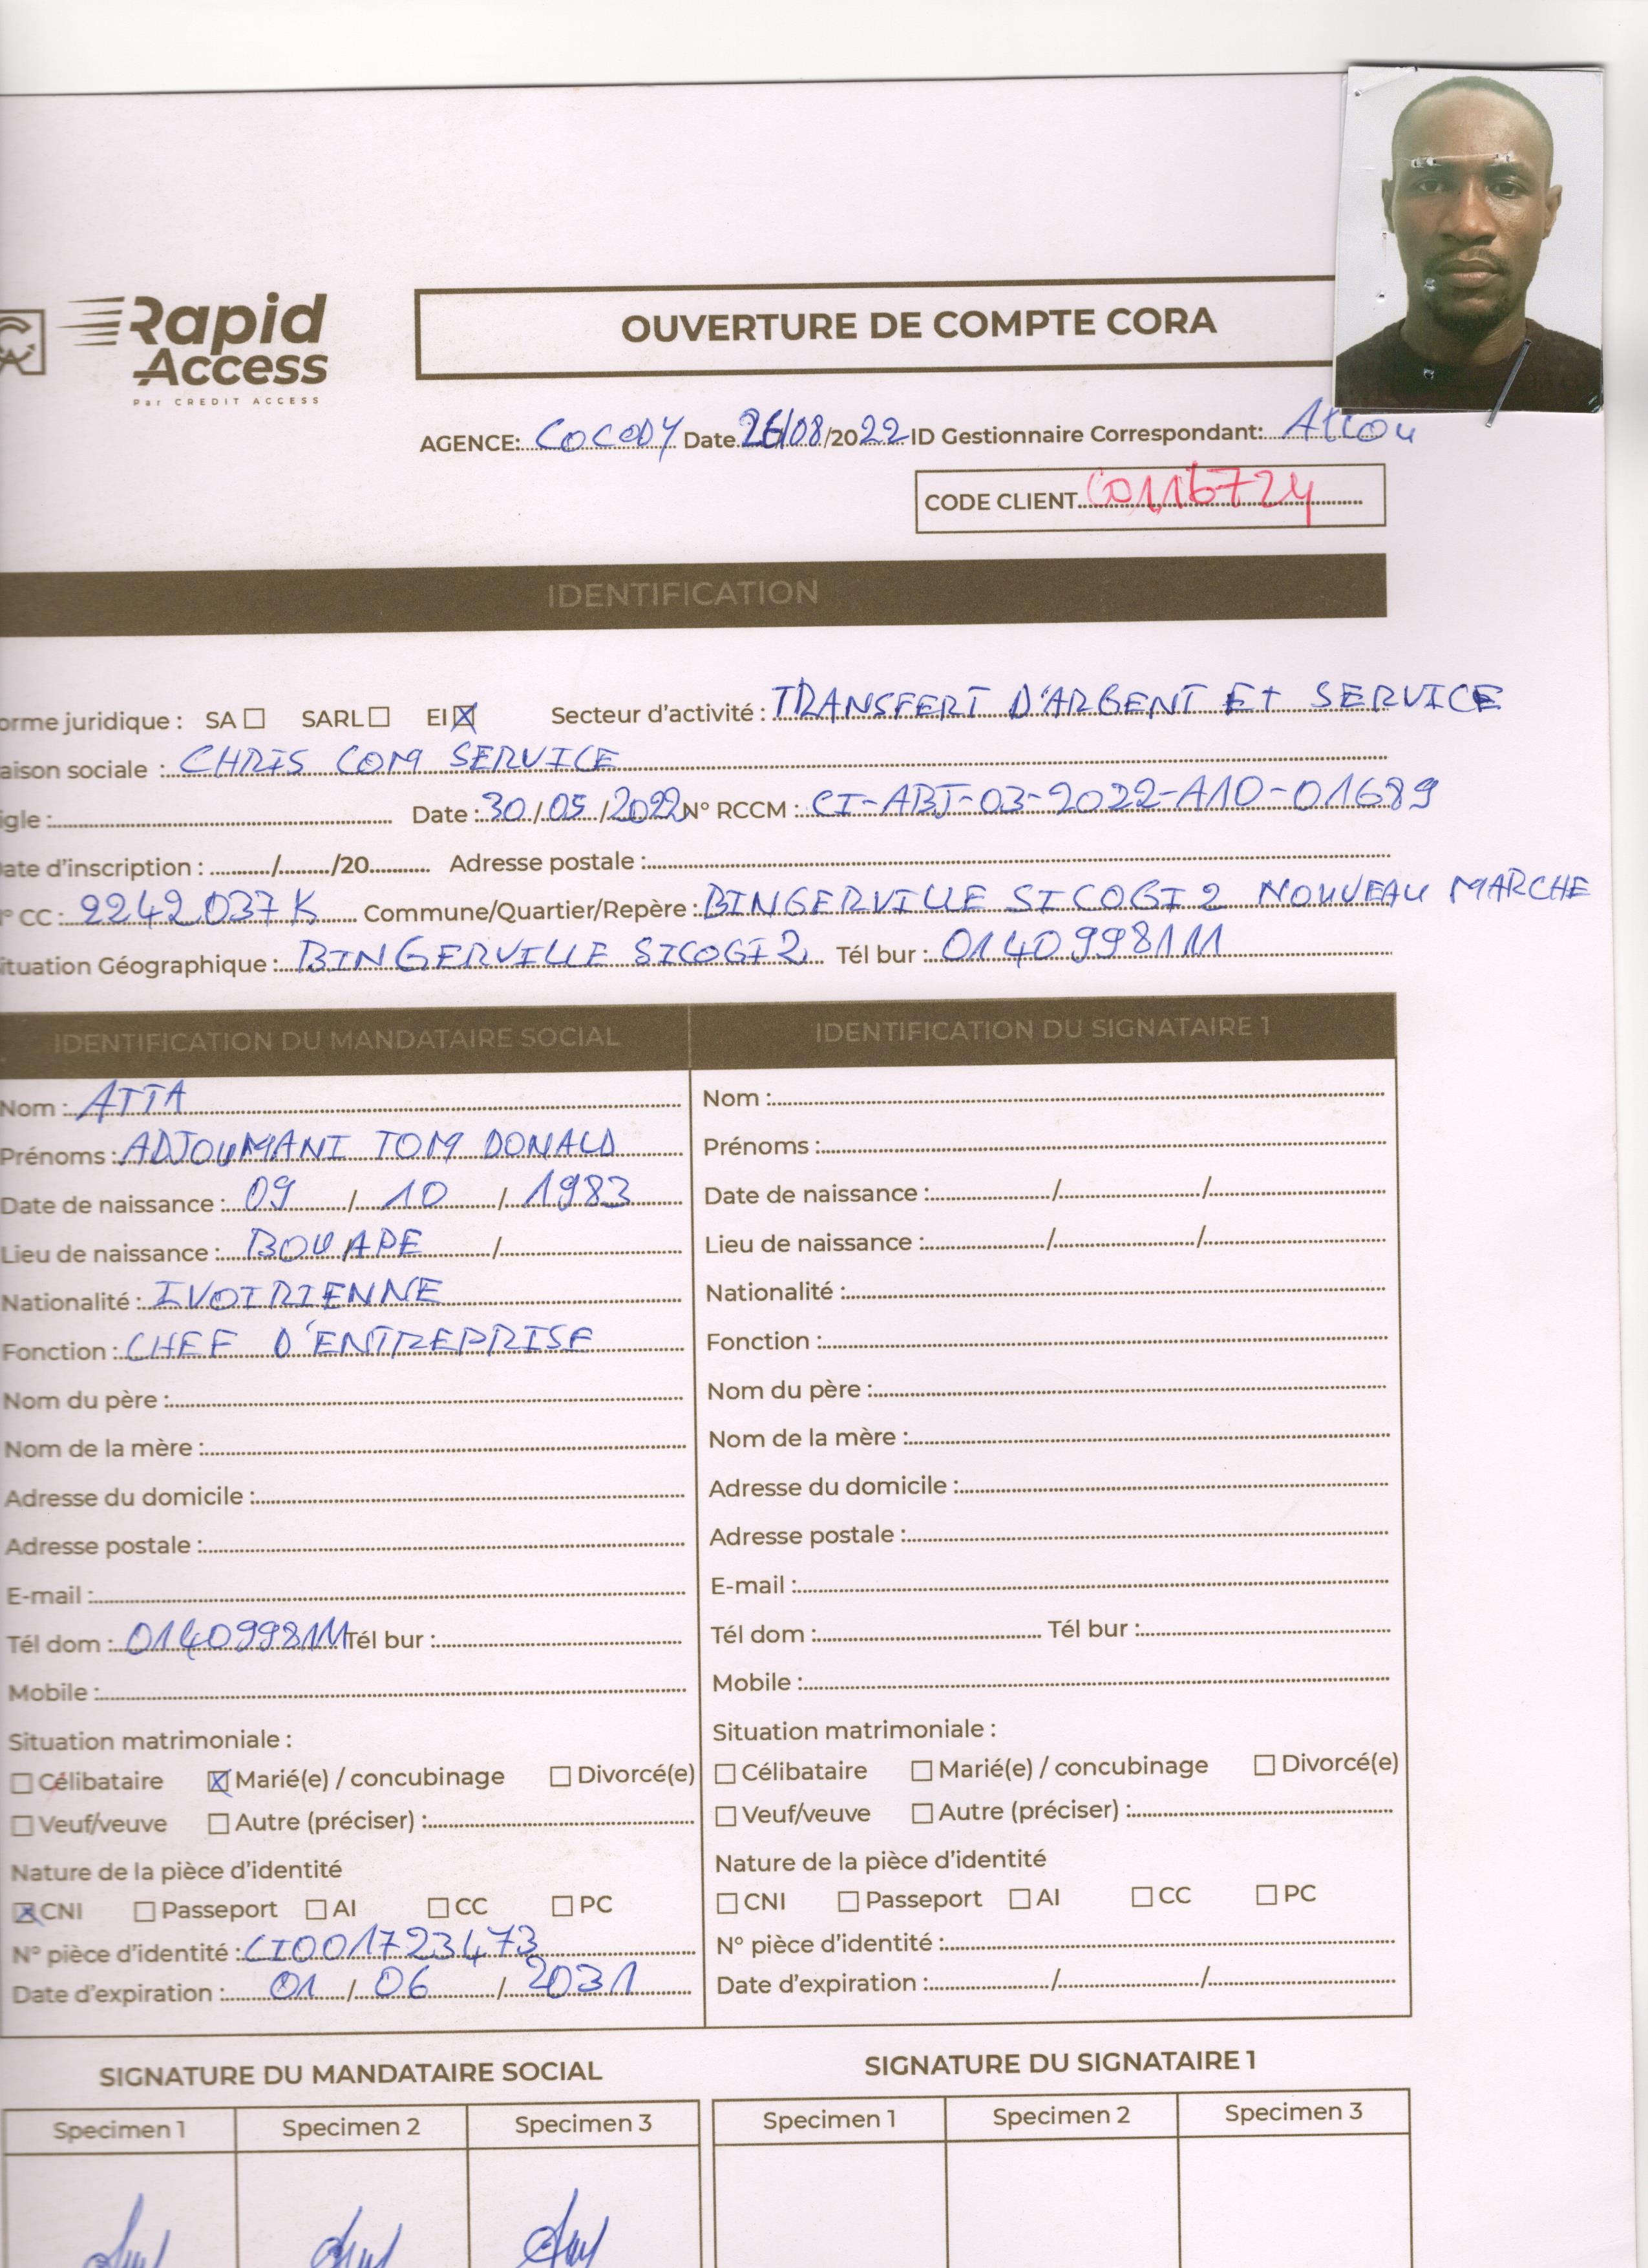 Rapid
Access
Par CREDIT ACCESS
OUVERTURE DE COMPTE CORA
AGENCE: COCODY Date 26/08/2022 ID Gestionnaire Correspondant:
CODE CLIENT
IDENTIFICATION
orme juridique : SA ☐ SARL ☐ EI ☒ Secteur d'activité : TRANSFERT D'ARGENT Et SERVICE
aison sociale : CHRIS COM SERVICE
igle : Date : 30/05/2022 N° RCCM : CI-ABJ-03-2022-A10-01689
ate d'inscription : ......../......../20........ Adresse postale :
° CC : 2242037K Commune/Quartier/Repère : BINGERVILLE SICOGI 2 NOUVEAU MARCHE
ituation Géographique : BINGERVILLE SICOGI 2 Tél bur : 0140998111
IDENTIFICATION DU MANDATAIRE SOCIAL
Nom : ATTA
Prénoms : ADJOUMANI TOM DONALD
Date de naissance : 09 / 10 / 1983
Lieu de naissance : BOUAPE /
Nationalité : IVOIRIENNE
Fonction : CHEF D'ENTREPRISE
Nom du père :
Nom de la mère :
Adresse du domicile :
Adresse postale :
E-mail :
Tél dom : 0140998111 Tél bur :
Mobile :
Situation matrimoniale :
☐ Célibataire ☒ Marié(e) / concubinage ☐ Divorcé(e)
☐ Veuf/veuve ☐ Autre (préciser) :
Nature de la pièce d'identité
☒ CNI ☐ Passeport ☐ AI ☐ CC ☐ PC
N° pièce d'identité : CI001723473
Date d'expiration : 01 / 06 / 2031
IDENTIFICATION DU SIGNATAIRE 1
Nom :
Prénoms :
Date de naissance : / /
Lieu de naissance : / /
Nationalité :
Fonction :
Nom du père :
Nom de la mère :
Adresse du domicile :
Adresse postale :
E-mail :
Tél dom : Tél bur :
Mobile :
Situation matrimoniale :
☐ Célibataire ☐ Marié(e) / concubinage ☐ Divorcé(e)
☐ Veuf/veuve ☐ Autre (préciser) :
Nature de la pièce d'identité
☐ CNI ☐ Passeport ☐ AI ☐ CC ☐ PC
N° pièce d'identité :
Date d'expiration : / /
SIGNATURE DU MANDATAIRE SOCIAL
Specimen 1 Specimen 2 Specimen 3
SIGNATURE DU SIGNATAIRE 1
Specimen 1 Specimen 2 Specimen 3